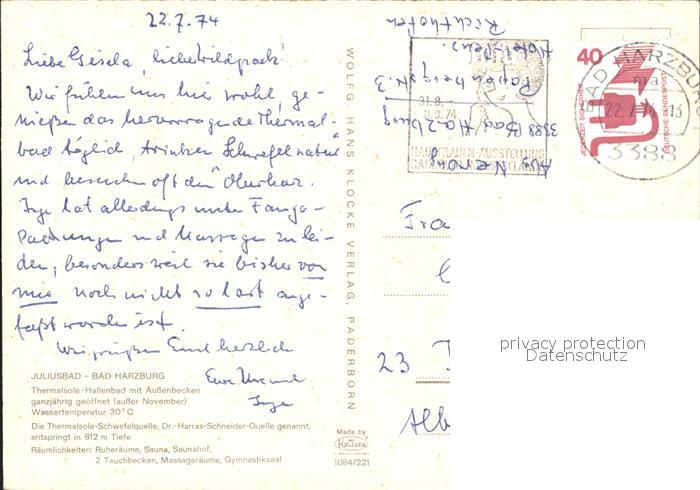 22.7.74
Liebe Gisela, liebe Wildpark!
Wir fühlen uns hier wohl, ge-
nießen das hervorragende Thermal-
bad täglich, trinken Schwefel natur
und besuchen oft den Oberharz.
Inge hat allerdings unter Fango-
Packungen und Massagen zu lei-
den, besonders weil sie bisher von
mir noch nicht so hart ange-
faßt worden ist.
Wir grüßen Euch herzlich
Eure
Inge
JULIUSBAD – BAD HARZBURG
Thermalsole-Hallenbad mit Außenbecken
ganzjährig geöffnet (außer November)
Wassertemperatur 30°C
Die Thermalsole-Schwefelquelle, Dr.-Harras-Schneider-Quelle genannt,
entspringt in 812 m Tiefe
Räumlichkeiten: Ruheräume, Sauna, Saunahof,
2 Tauchbecken, Massageräume, Gymnastiksaal
WOLFG. HANS KLOCKE VERLAG, PADERBORN
Made by
KRÜGER
1084/221
Hotel-Pens.
3388 Bad Harzburg
31.8.-
8.9.74
HAUSFRAUEN-AUSSTELLUNG
40
JEDERZEIT SICHERHEIT
DEUTSCHE BUNDESPOST
BAD HARZBURG
22.7.74-13
3388
Fra
23
Alb
privacy protection
Datenschutz